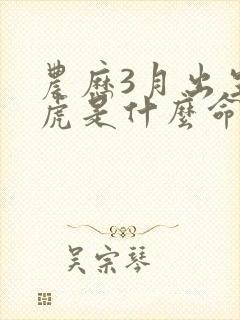 農歷3月出生
虎是什麼命
吳宗琴